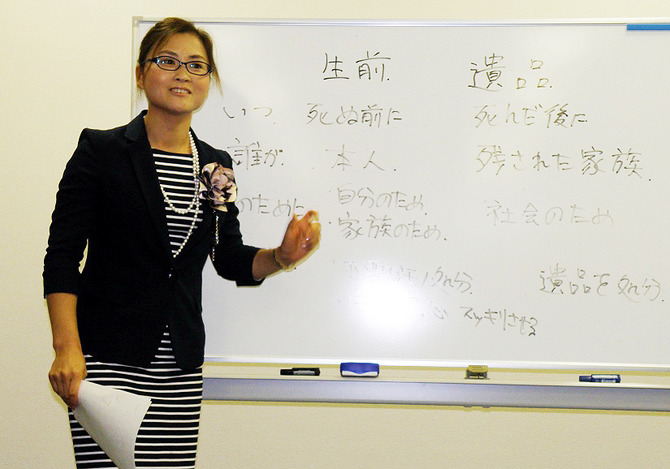 生前. 遺品.
いつ. 死ぬ前に 死んだ後に
誰が. 本人. 残された家族.
のために ・自分のため. 社会のため
・家族のため.
処分. 遺品を処分
スッキリさせる